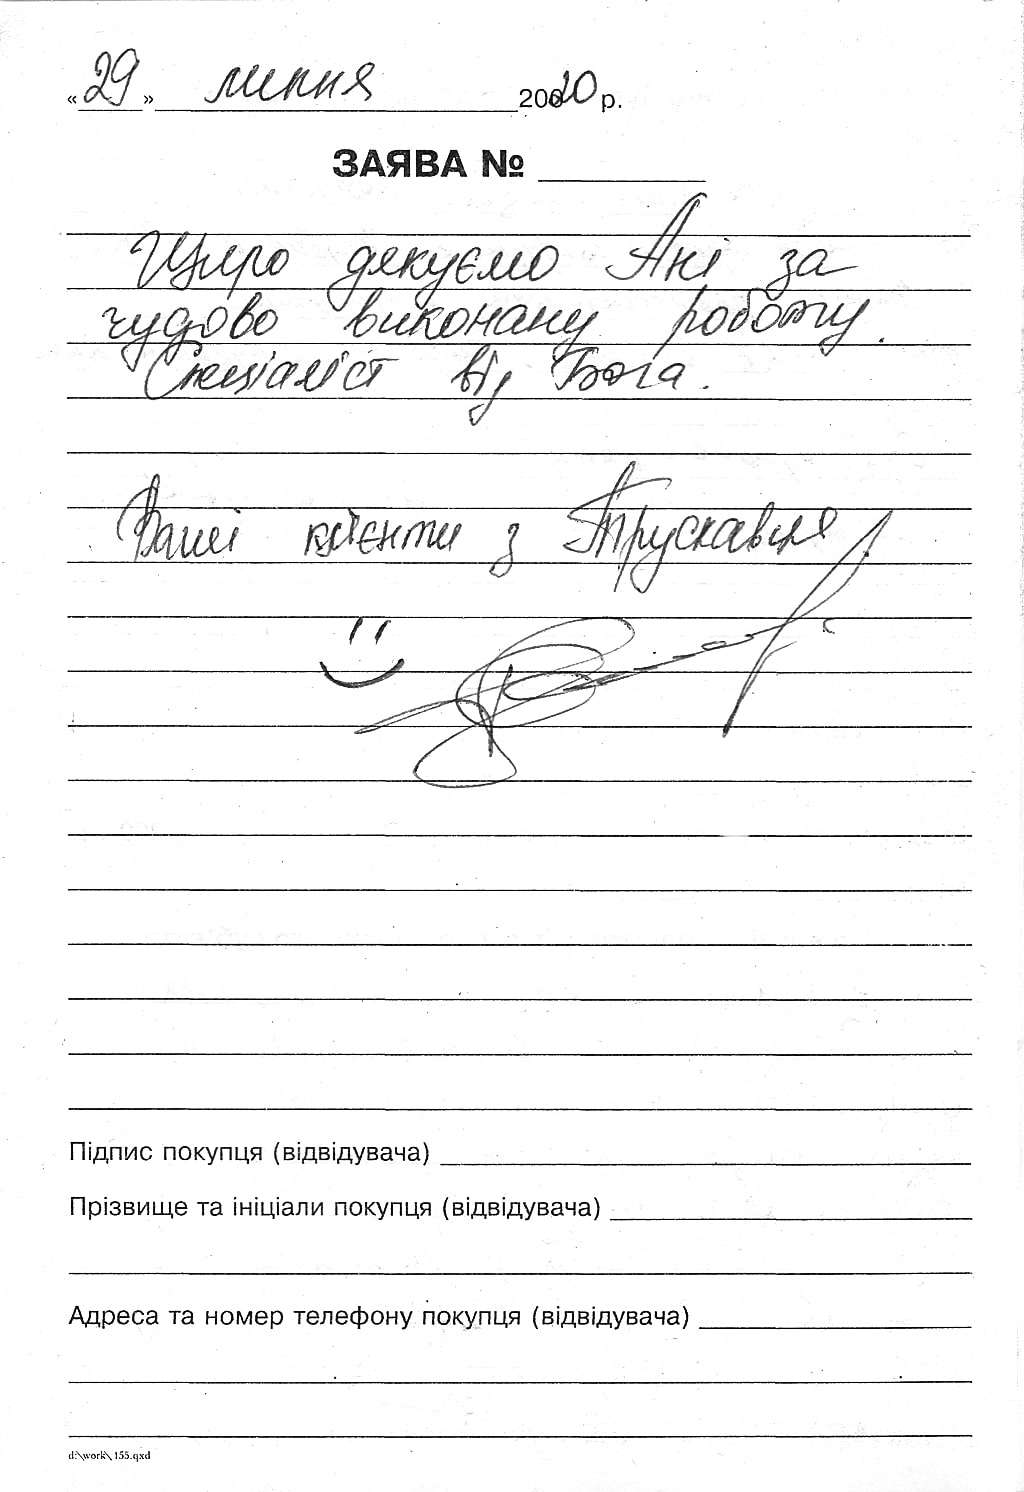 «29» липня 2020 р.
ЗАЯВА № ________
Щиро дякуємо Ані за
чудово виконану роботу.
Спеціаліст від Бога.
Ваші клієнти з Трускавця
Підпис покупця (відвідувача)
Прізвище та ініціали покупця (відвідувача)
Адреса та номер телефону покупця (відвідувача)
d:\work\155.qxd